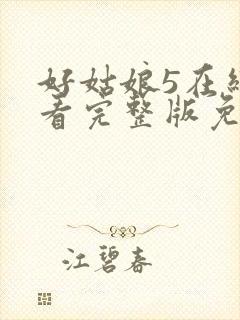 好姑娘5在
看完整版免
江碧春